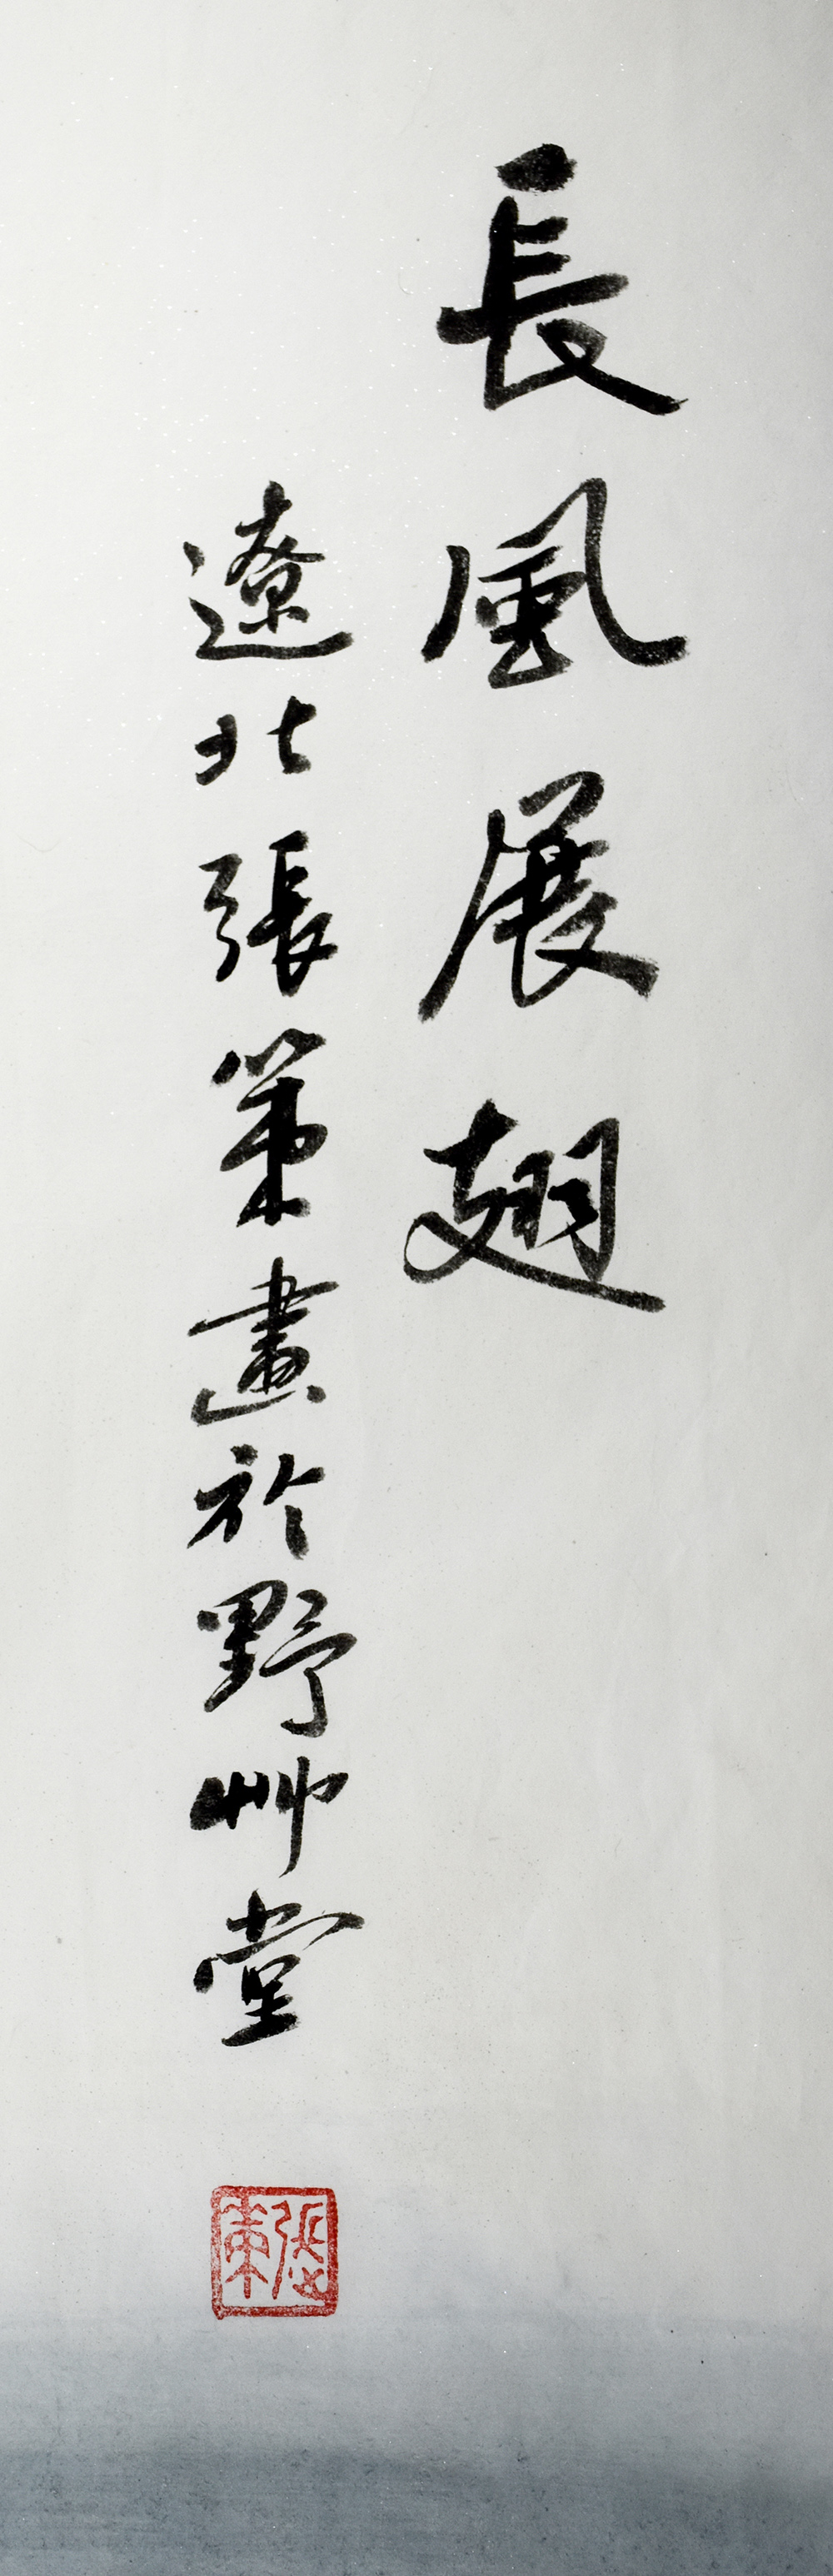 長風展翅
遼北張策畫於野艸堂
張策